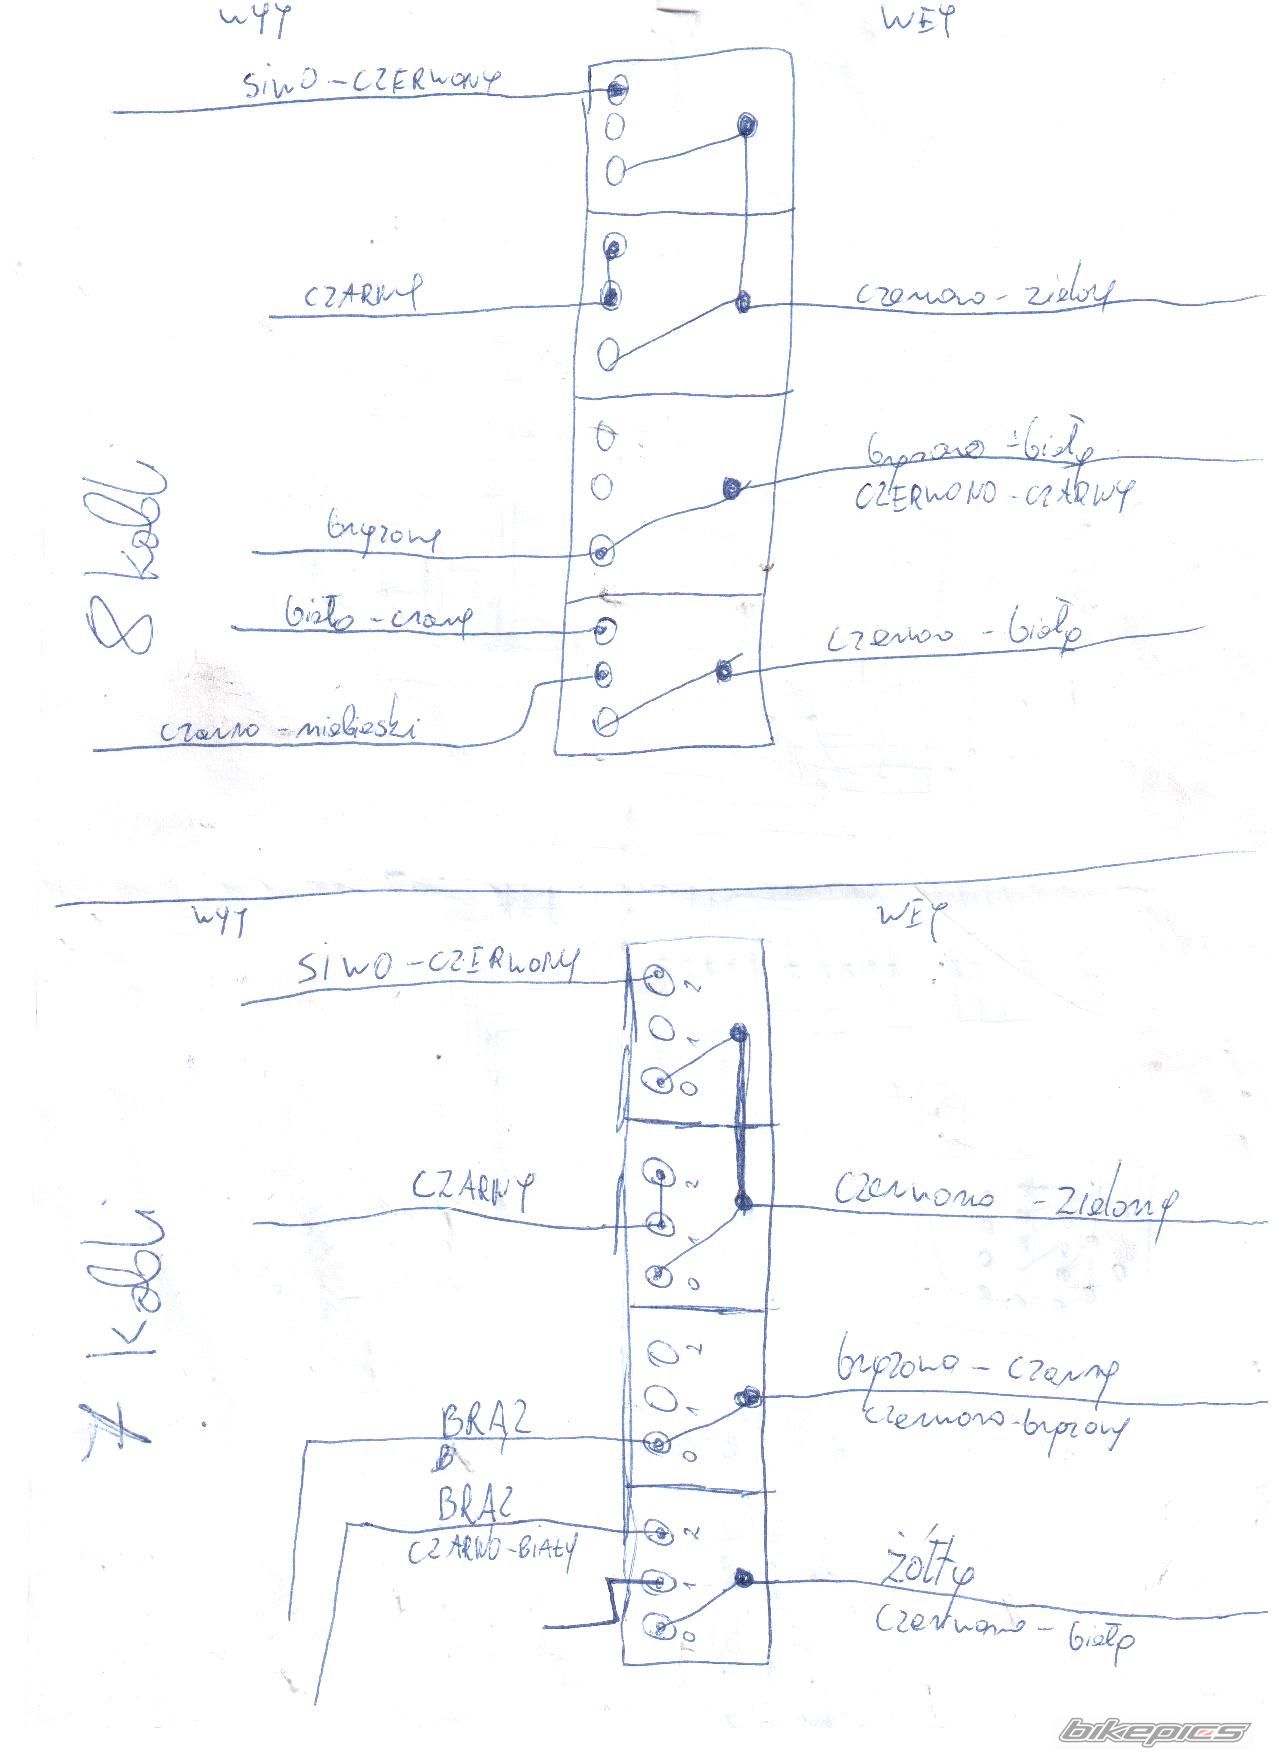 WYY WEY
SIWO-CZERWONY
CZARNY
czerwono-zielony
brązowo-biały
CZERWONO-CZARNY
brązowy
biało-czarny
czerwono-biały
czarno-niebieski
8 kabli
WYY WEY
SIWO-CZERWONY
2
1
0
CZARNY
2
1
0
czerwono-zielony
2
1
0
brązowo-czarny
czerwono-brązowy
BRĄZ
B
BRĄZ
CZARNO-BIAŁY
2
1
0
żółty
czerwono-biały
7 kabli
bikepics